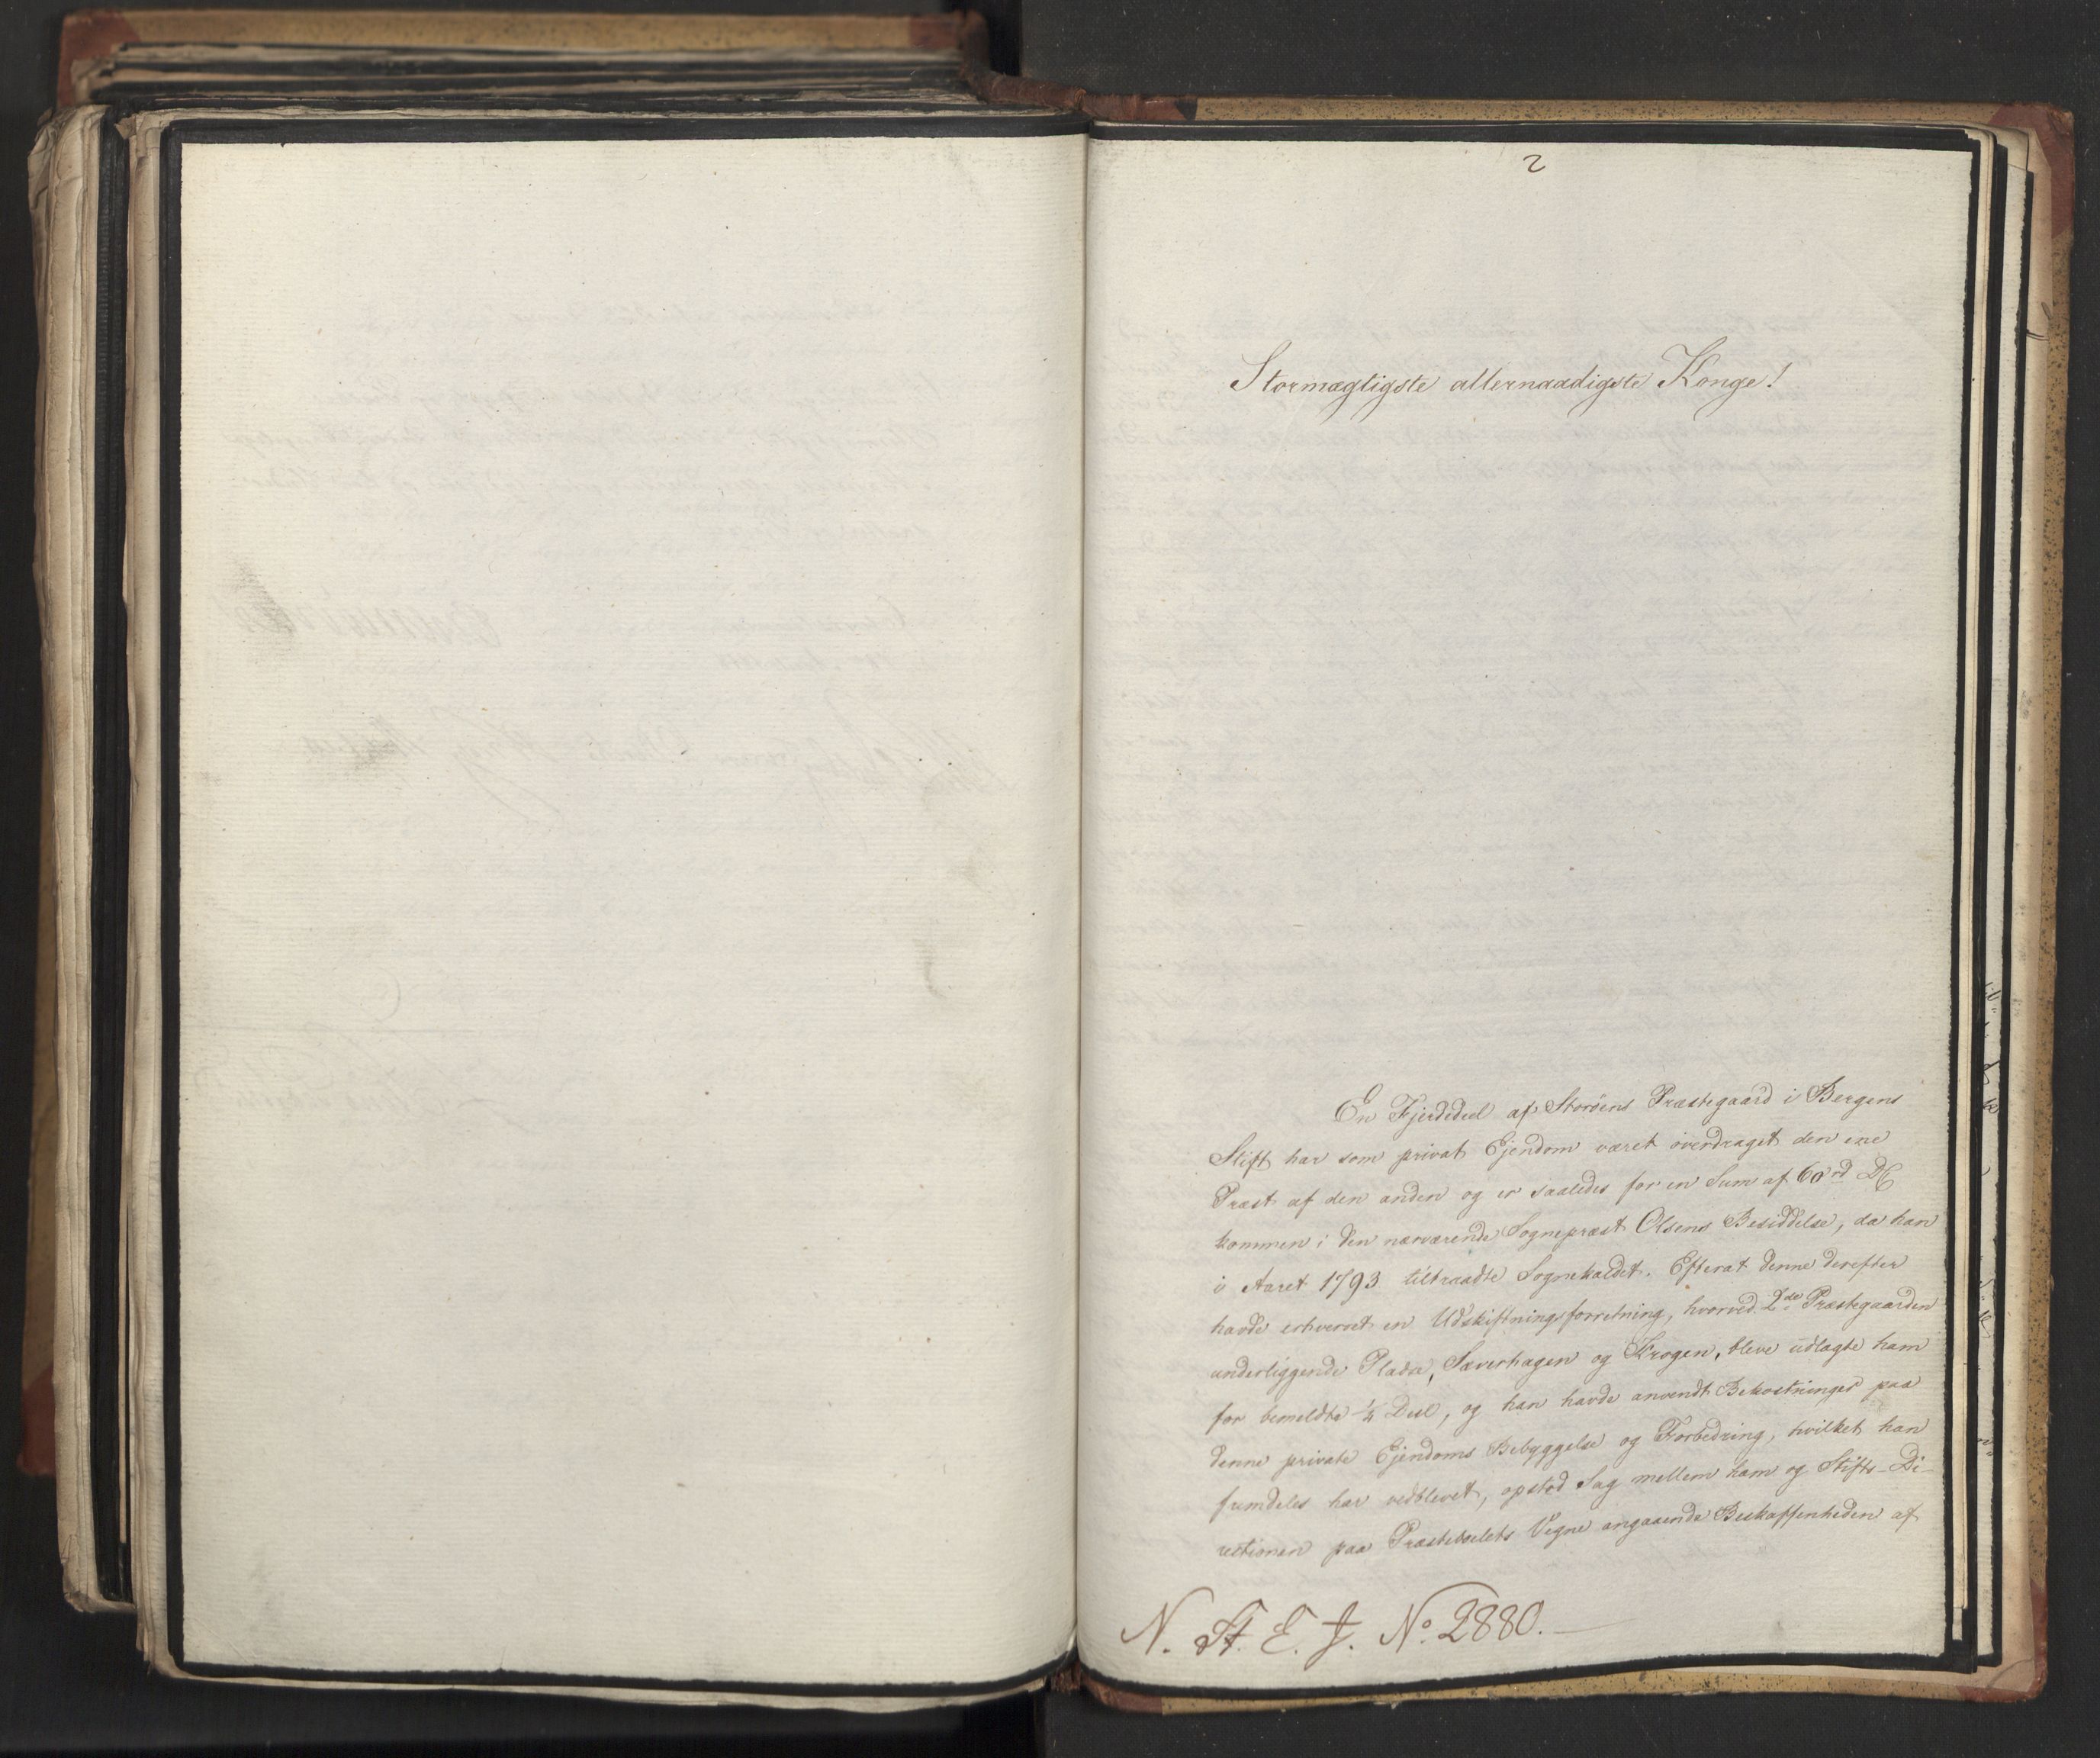 2
Stormægtigste allernaadigste Konge!
En Fjerdedeel af Storöens Præstegaard i Bergens
Stift har som privat Ejendom været overdraget den ene
Præst af den anden og er saaledes for en Sum af 60 rd DC
kommen i den nærværende Sognepræst Olsens Besiddelse, da han
i Aaret 1793 tiltraadte Sognekaldet. Efterat denne derefter
havde erhvervet en Udskiftningsforretning, hvorved 2de Præstegaarden
underliggende Pladse, Sæverhagen og Krogen, bleve udlagte ham
for bemeldte 1/4 Deel, og han havde anvendt Bekostninger paa
denne private Ejendoms Bebyggelse og Forbedring, hvilket han
fremdeles har vedblevet, opstod Sag mellem ham og Stifts-Di-
rectionen paa Præstebolets Vegne angaaende Beskaffenheden af
N. St. E. J. No. 2880.